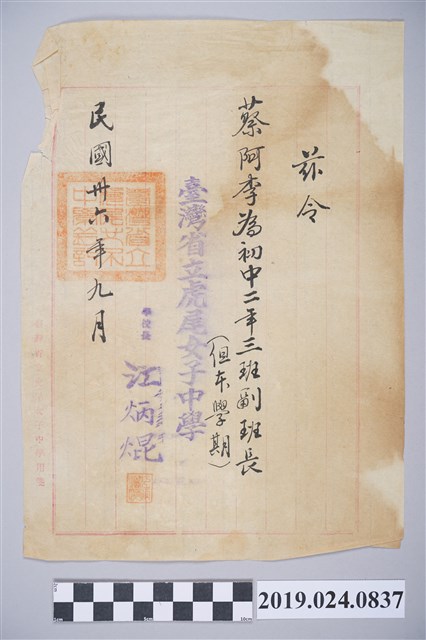 茲令
蔡阿李為初中二年三班副班長
(但本學期)
臺灣省立虎尾女子中學
學校長
江炳焜
民國卅六年九月
2019.024.0837